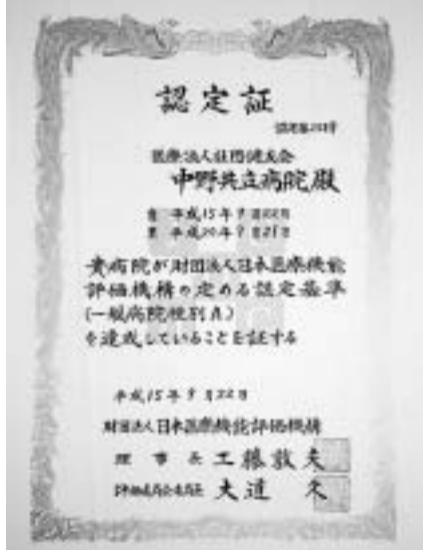 認定証
医療法人社団健友会
中野共立病院殿
自 平成15年9月22日
至 平成20年9月21日
貴病院が財団法人日本医療機能
評価機構の定める認定基準
(一般病院種別A)
を達成していることを証する
平成15年9月22日
財団法人日本医療機能評価機構
理事長 工藤敦夫
大道 久